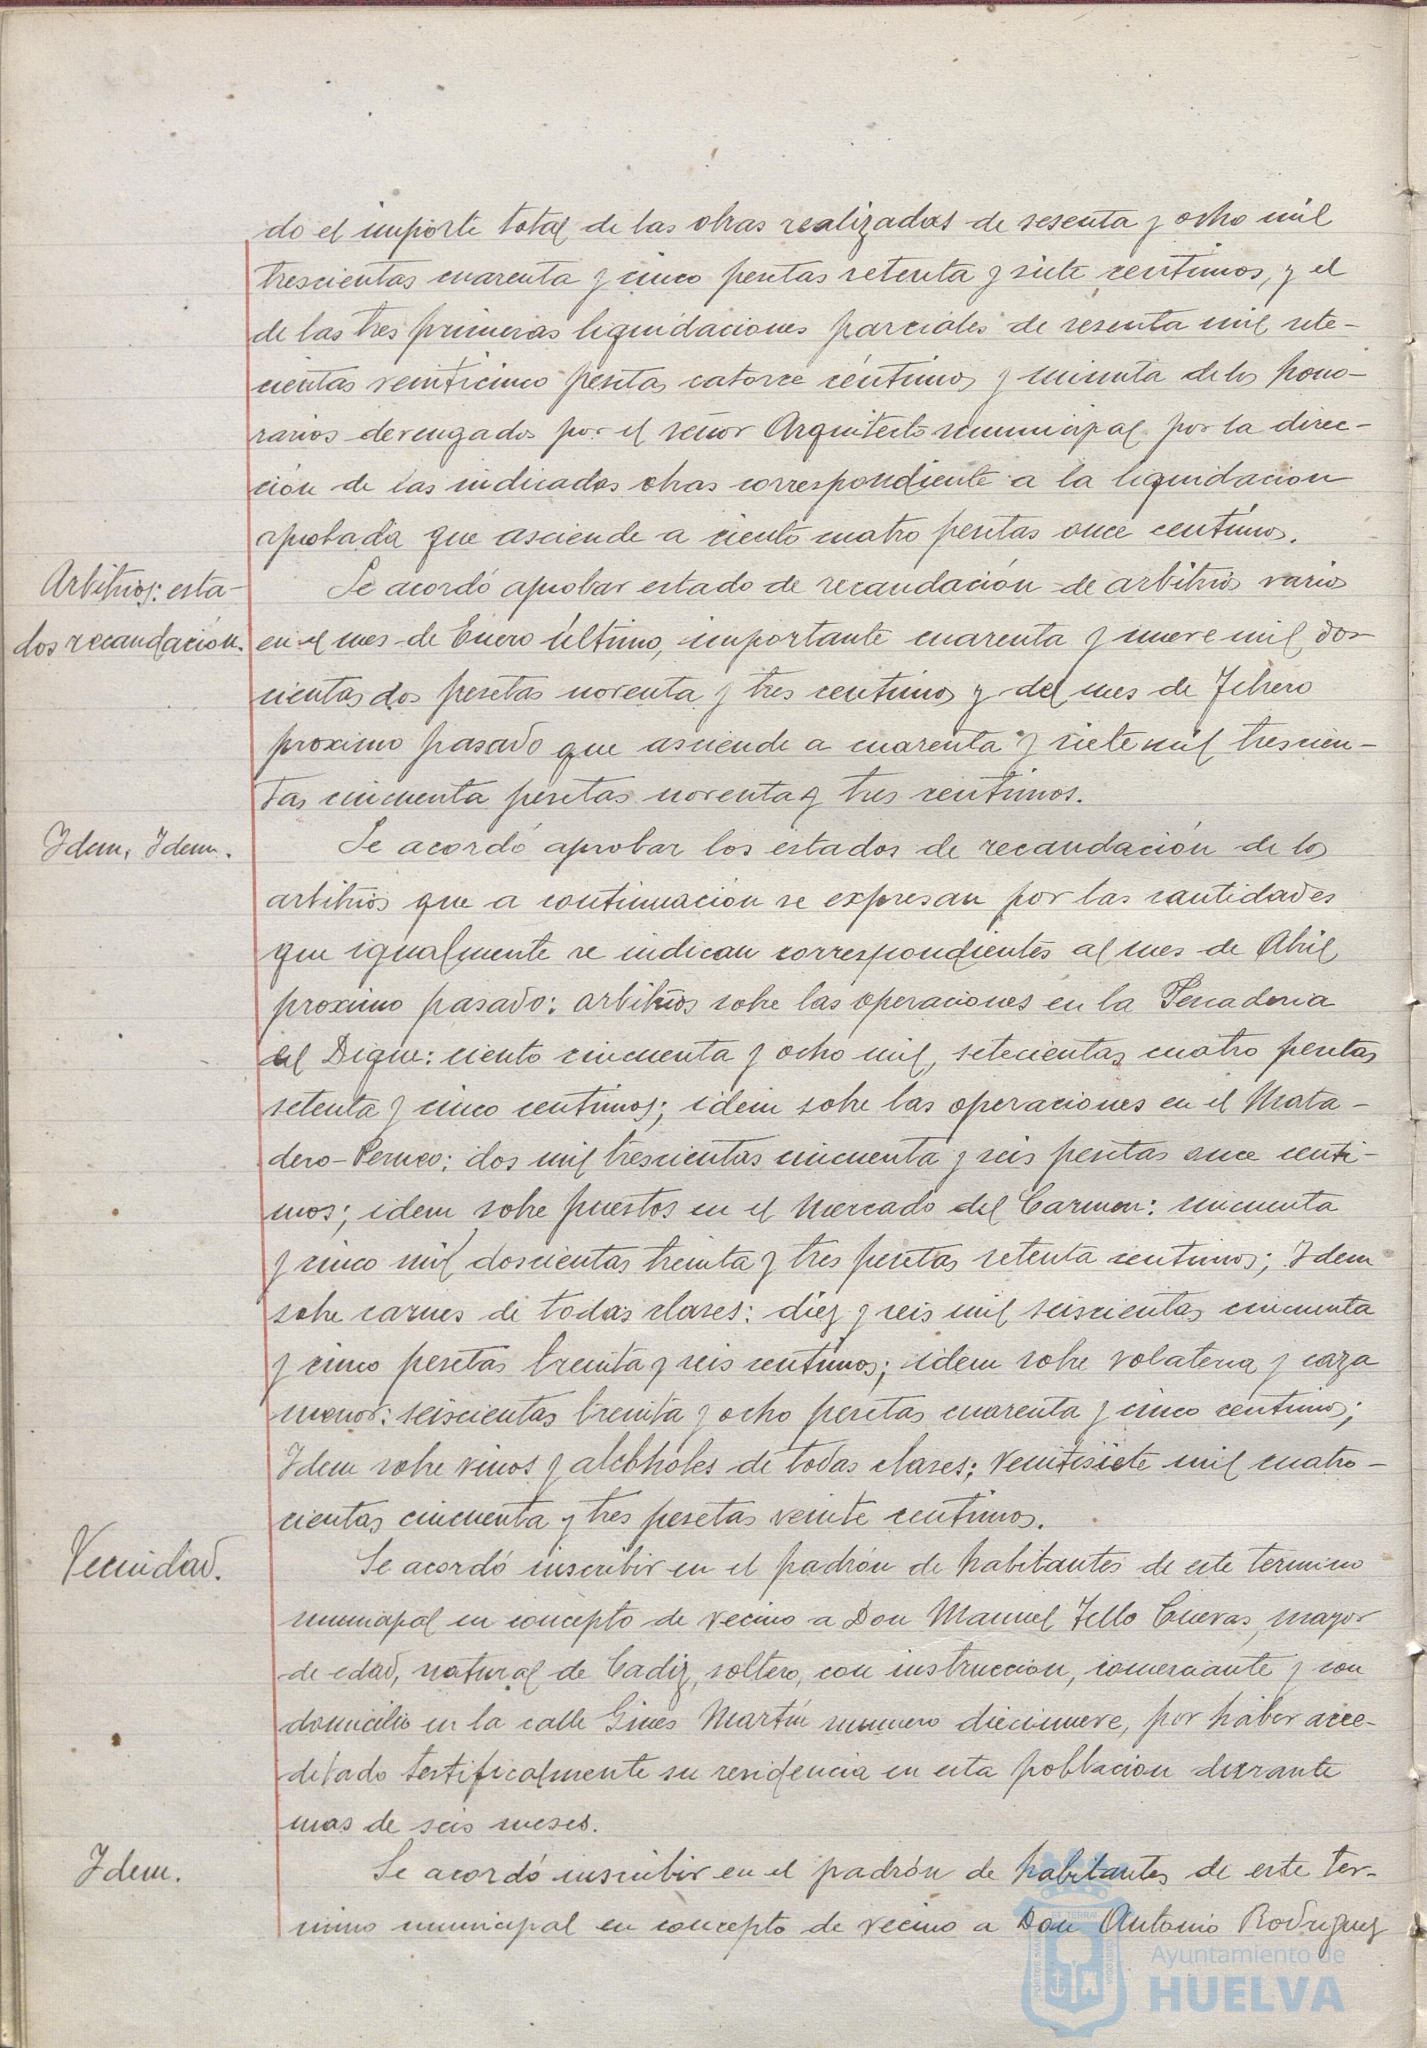 do el importe total de las obras realizadas de sesenta y ocho mil
trescientas cuarenta y cinco pesetas setenta y siete centimos, y el
de las tres primeras liquidaciones parciales de sesenta mil sete-
cientas veinticinco pesetas catorce céntimos y minuta de los hono-
rarios devengados por el señor Arquitecto municipal por la direc-
ción de las indicadas obras correspondiente a la liquidacion
aprobada que asciende a ciento cuatro pesetas once centimos.
Arbitrios: esta-
dos recaudación.
Se acordó aprobar estado de recaudación de arbitrios varios
en el mes de Enero último, importante cuarenta y nueve mil dos-
cientas dos pesetas noventa y tres centimos y del mes de Febrero
proximo pasado que asciende a cuarenta y siete mil trescien-
tas cincuenta pesetas noventa y tres centimos.
Idem, Idem.
Se acordó aprobar los estados de recaudación de los
arbitrios que a continuación se expresan por las cantidades
que igualmente se indican correspondientes al mes de Abril
proximo pasado: arbitrios sobre las operaciones en la Pescaderia
del Dique: ciento cincuenta y ocho mil, setecientas cuatro pesetas
setenta y cinco centimos; idem sobre las operaciones en el Mata-
dero-Perneo: dos mil trescientas cincuenta y seis pesetas once centi-
mos; idem sobre puestos en el Mercado del Carmen: cincuenta
y cinco mil doscientas treinta y tres pesetas setenta centimos; Idem
sobre carnes de todas clases: diez y seis mil seiscientas cincuenta
y cinco pesetas treinta y seis centimos; idem sobre volateria y caza
menor: seiscientas treinta y ocho pesetas cuarenta y cinco centimos;
Idem sobre vinos y alcoholes de todas clases: Veintisiete mil cuatro-
cientas cincuenta y tres pesetas veinte centimos.
Vecindad.
Se acordó inscribir en el padrón de habitantes de este termino
municipal en concepto de vecino a Don Manuel Tello Cuevas, mayor
de edad, natural de Cadiz, soltero, con instruccion, comerciante y con
domicilio en la calle Gines Martín numero diecinueve, por haber acre-
ditado testificalmente su residencia en esta poblacion durante
mas de seis meses.
Idem.
Se acordó inscribir en el padrón de habitantes de este ter-
mino municipal en concepto de vecino a Don Antonio Rodriguez
Ayuntamiento de
HUELVA